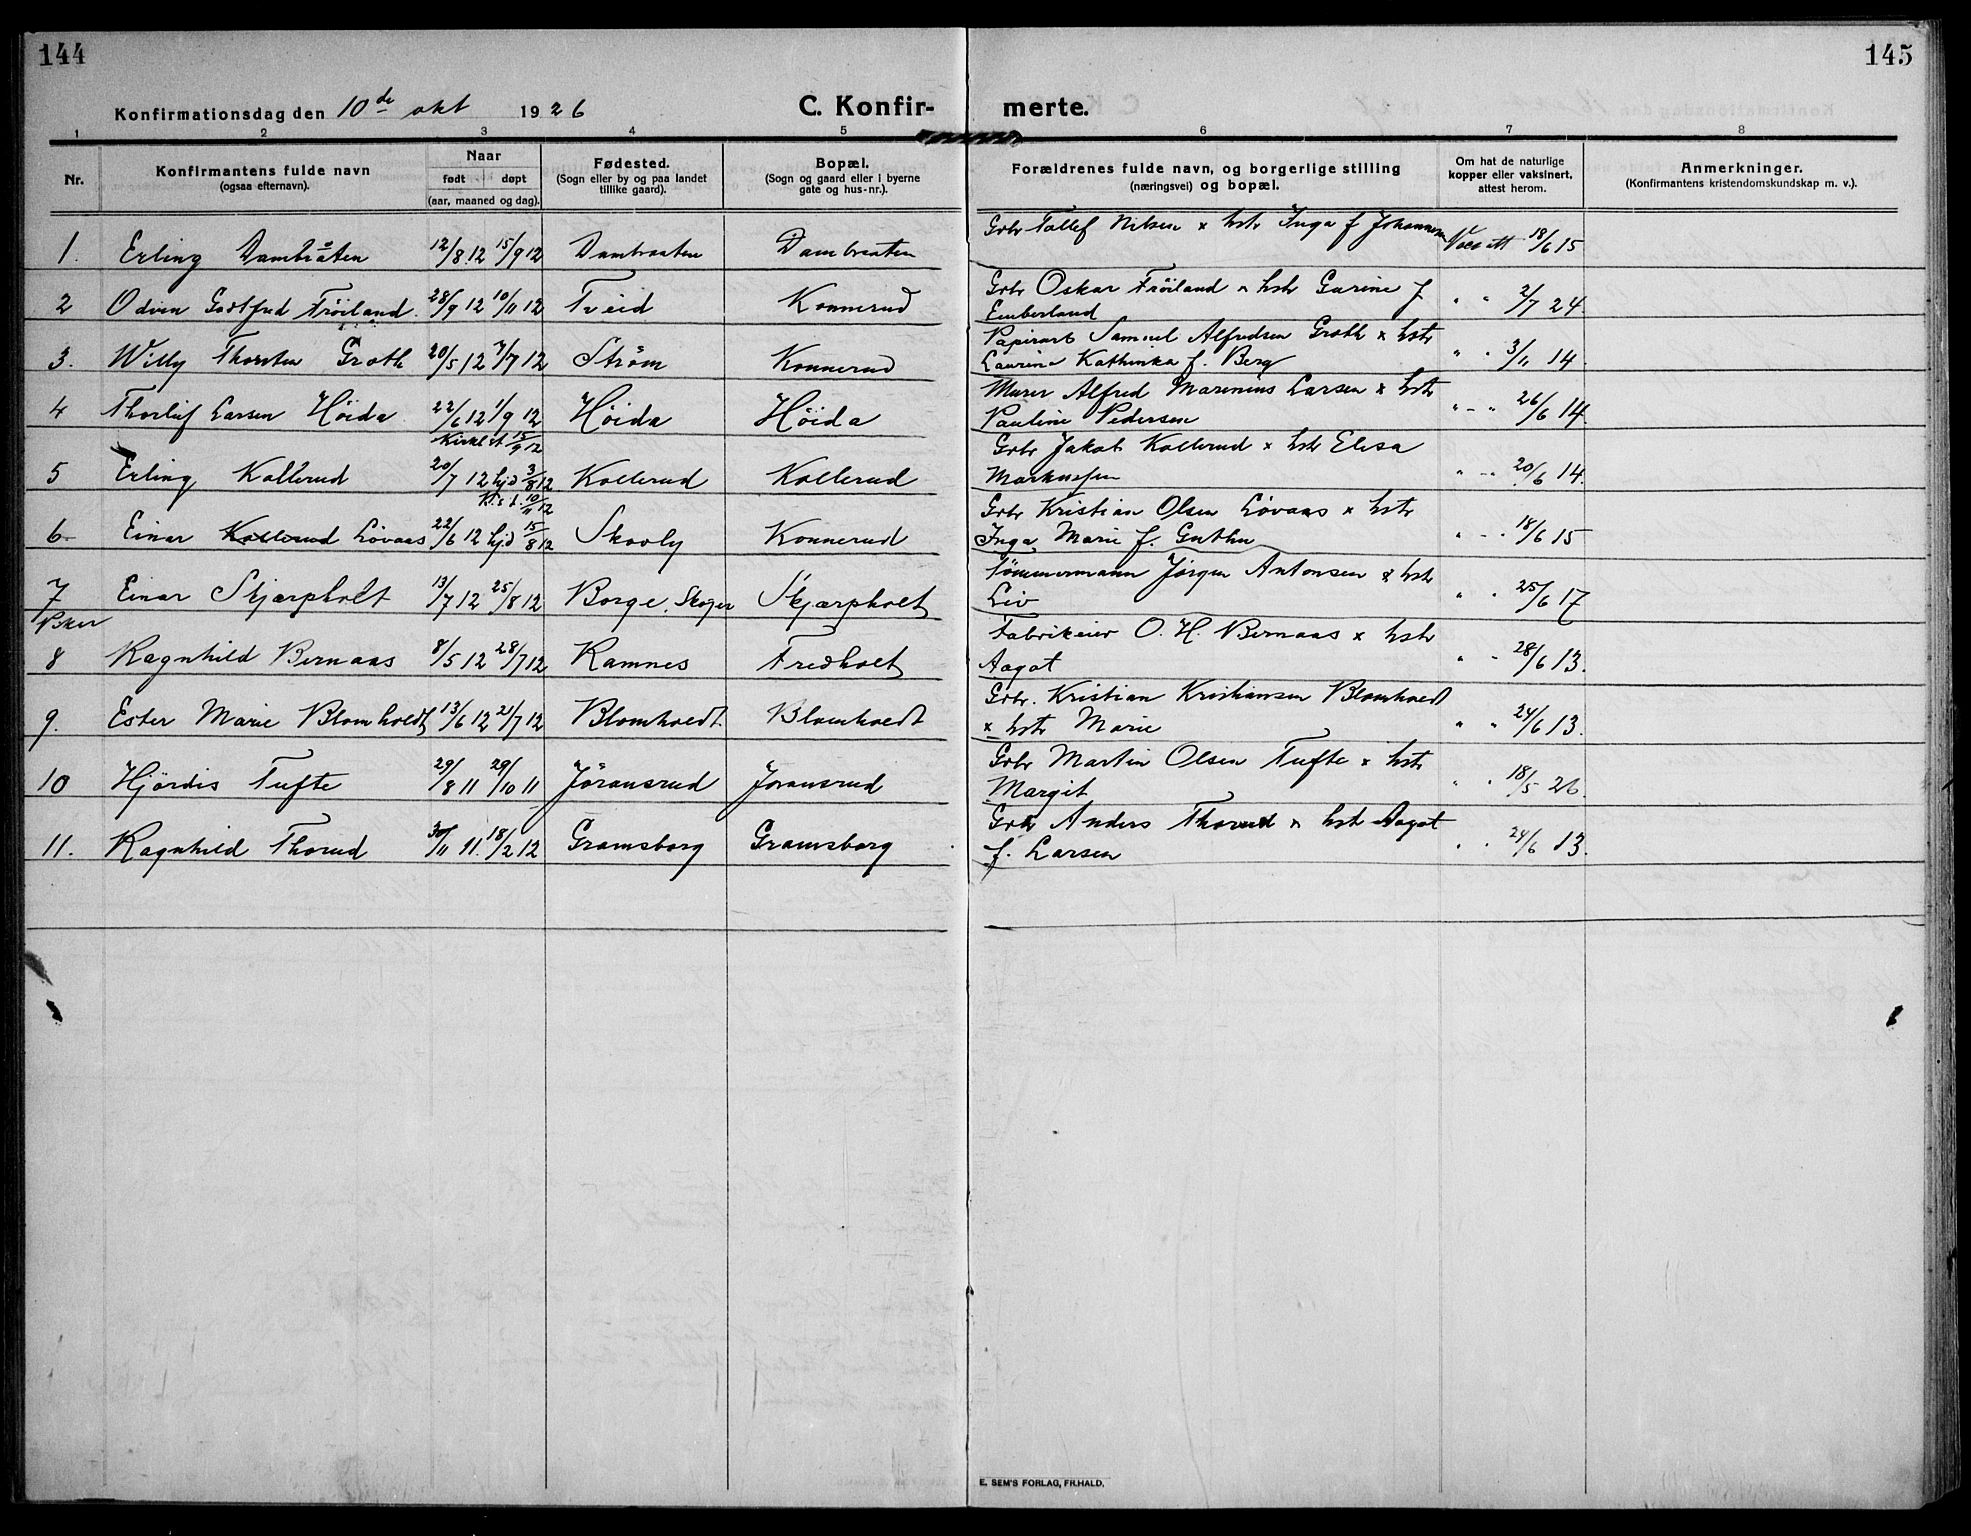 144
145
Konfirmationsdag den 10de okt 1926
C. Konfir-
merte.
1 2 3 4 5 6 7 8
Nr.
Konfirmantens fulde navn
(ogsaa efternavn).
Naar
født døpt
(aar, maaned og dag).
Fødested.
(Sogn eller by og paa landet
tillike gaard).
Bopæl.
(Sogn og gaard eller i byerne
gate og hus-nr.).
Forældrenes fulde navn, og borgerlige stilling
(næringsvei) og bopæl.
Om hat de naturlige
kopper eller vaksinert,
attest herom.
Anmerkninger.
(Konfirmantens kristendomskundskap m. v.).
1. Erling Dambråten 12/8 12 15/9 12 Dambraaten Dambraaten
Gbr Tollef Nilsen x hstr Inga f Johannesen Vacc att 18/6 15
2 Odvin Godtfred Frøiland. 28/9 12 10/11 12 Tveid Konnerud
Gbr Oskar Frøiland x hstr Gurine f
Emberland " " 2/7 24.
3. Willy Thorsten Groth 20/5 12 7/7 12 Strøm Konnerud
Papirarb Samuel Alfredsen Groth x hstr
Laurine Kathinka f. Berg " " 3/11 14
4 Thorleif Larsen Höida 22/6 12 1/9 12 Höida Höida
Murer Alfred Marinius Larsen x hstr
Pauline Pedersen " - " 26/6 14.
Kirkl st 15/9 12
5 Erling Kollerud 20/7 12 hjd 3/8 12 Kollerud Kollerud
Gbr Jakob Kollerud x hstr Elisa
Markussen " - " 20/6 14.
K. st. 10/11 12
6 Einar Kollerud Løvaas 22/6 12 hjd 15/8 12 Skovly Konnerud
Gbr Kristian Olsen Løvaas x hstr
Inga Marie f. Guthu " - " 18/6 15
7 Einar Skjærpholt 13/7 12 25/8 12 Borge, Skoger Skjærpholt
Tömmermann Jørgen Antonsen x hstr
Liv " " 25/6 17
Piker
8 Ragnhild Bernaas 8/5 12 28/7 12 Ramnes Fredholt
Fabrikeier O. H. Bernaas x hstr
Aagot " " 28/6 13.
9. Ester Marie Blomholdt 13/6 12 21/7 12 Blomholdt. Blomholdt
Gbr. Kristian Kristiansen Blomholdt
x hstr Marie " " 24/6 13.
10 Hjördis Tufte 29/8 11 29/10 11 Jöransrud Jöransrud
Gbr Martin Olsen Tufte x hstr
Margit " " 18/5 26.
11. Ragnhild Thorud 30/11 11. 18/2 12 Gramsborg Gramsborg
Gbr Anders Thorud x hstr Aagot
f. Larsen " " 24/6 13.
E. SEM'S FORLAG, FR.HALD.